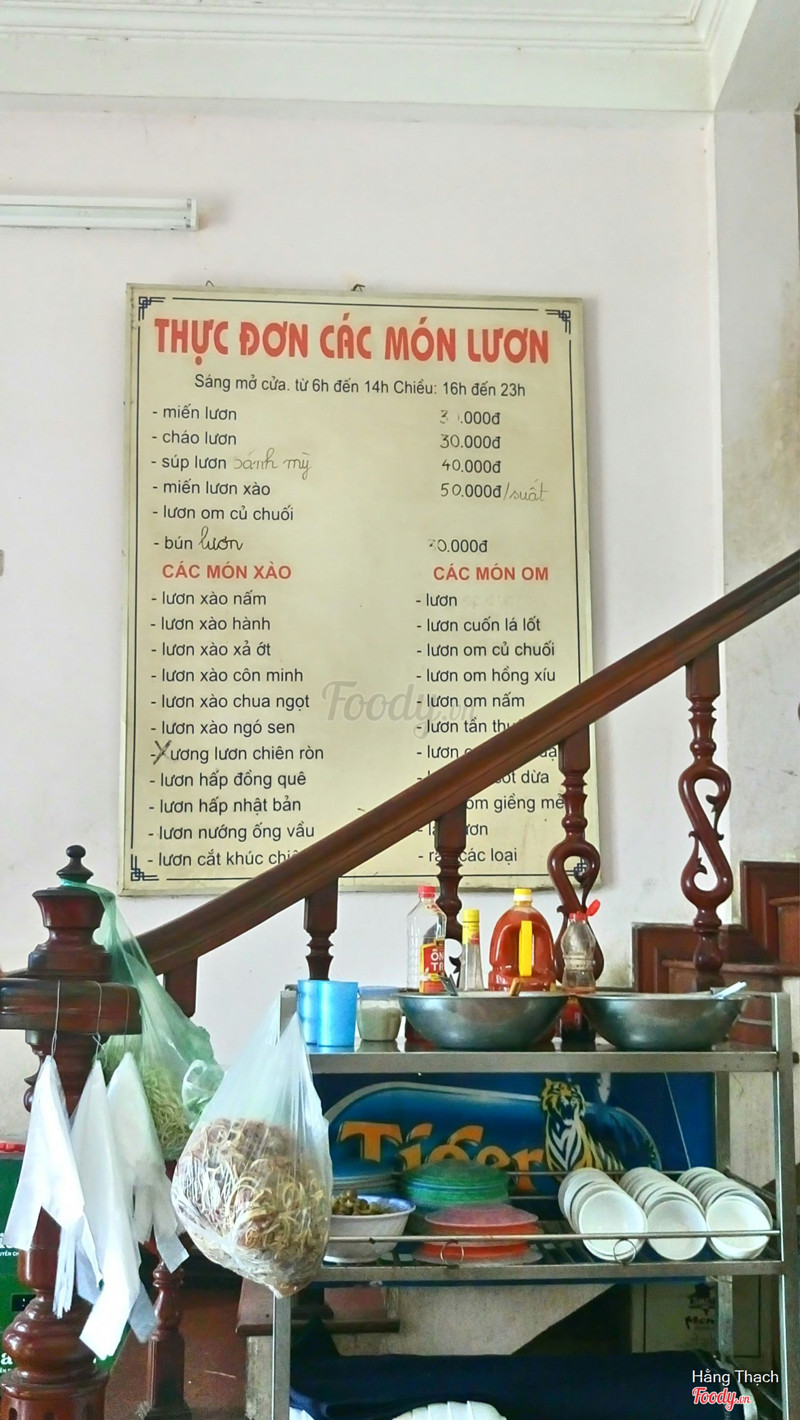 THỰC ĐƠN CÁC MÓN LƯƠN
Sáng mở cửa. từ 6h đến 14h Chiều: 16h đến 23h
- miến lươn .000đ
- cháo lươn 30.000đ
- súp lươn bánh mỳ 40.000đ
- miến lươn xào 50.000đ/suất
- lươn om củ chuối
- bún lươn 0.000đ
CÁC MÓN XÀO
- lươn xào nấm
- lươn xào hành
- lươn xào xả ớt
- lươn xào côn minh
- lươn xào chua ngọt
- lươn xào ngó sen
- Xương lươn chiên ròn
- lươn hấp đồng quê
- lươn hấp nhật bản
- lươn nướng ống vầu
- lươn cắt khúc
CÁC MÓN OM
- lươn
- lươn cuốn lá lốt
- lươn om củ chuối
- lươn om hồng xíu
- lươn om nấm
- lươn tần
- lươn
dừa
om giềng mẻ
- các loại
Foody.vn
Tiger
Hằng Thạch
Foody.vn